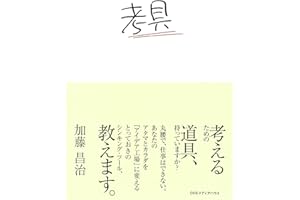 考具
考える
ための
道具、
持っていますか?
丸腰で、仕事はできない。
あなたの
アタマとカラダを
「アイデア工場」に変える
とっておきの
シンキング・ツール、
教えます。
加藤 昌治
CCCメディアハウス